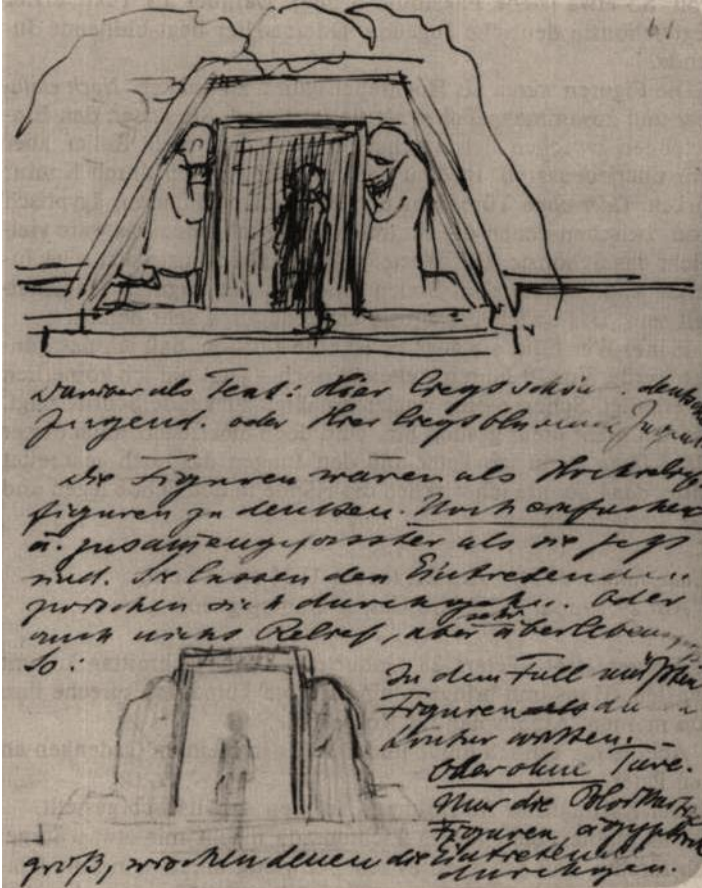 Darüber als Text: Hier liegt schön deutsche
Jugend. oder Hier liegt Jugend
Die Figuren wären als Hochrelief
figuren zu denken. Noch einfacher
u. zusammengefasster als sie jetzt
sind. Sie lassen den Eintretenden
zwischen sich durchgehn. Oder
auch nicht Relief, aber sehr
So:
In dem Fall müßten
Figuren
Oder ohne Türe.
Nur die
Figuren, ägyptisch
groß, zwischen denen die Eintretenden
durchgehen.